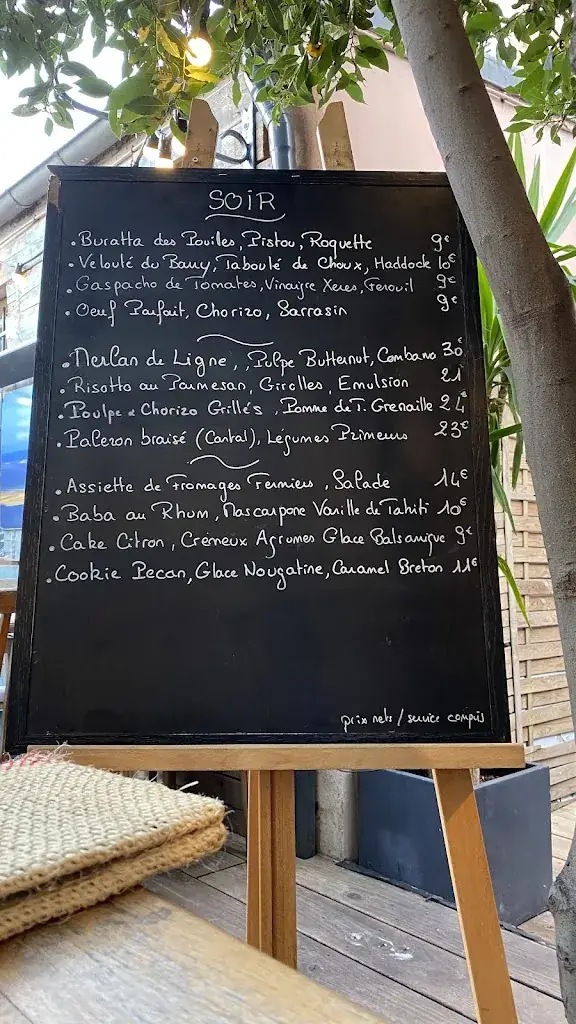 SOIR
. Buratta des Pouilles, Pistou, Roquette 9€
. Velouté du Barry, Taboulé de Choux, Haddock 10€
. Gaspacho de Tomates, Vinaigre Xeres, Fenouil 9€
. Oeuf Parfait, Chorizo, Sarrasin 9€
. Merlan de Ligne, , Pulpe Butternut, Combava 30€
. Risotto au Parmesan, Girolles, Emulsion 21€
. Poulpe & Chorizo Grillés, Pomme de T. Grenaille 24€
. Paleron braisé (Cantal), Légumes Primeurs 23€
. Assiette de Fromages Fermiers, Salade 14€
. Baba au Rhum, Mascarpone Vanille de Tahiti 10€
. Cake Citron, Crémeux Agrumes Glace Balsamique 9€
. Cookie Pecan, Glace Nougatine, Caramel Breton 11€
prix nets / service compris